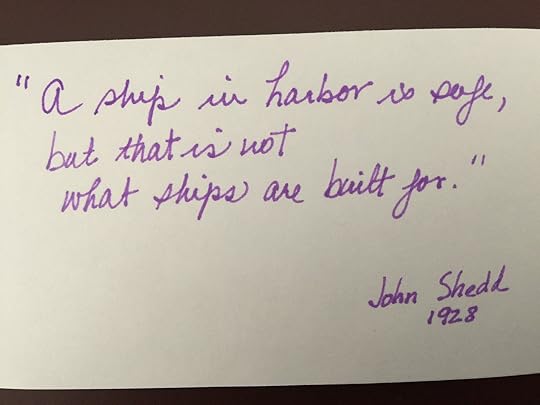 "A ship in harbor is safe,
but that is not
what ships are built for."
John Shedd
1928